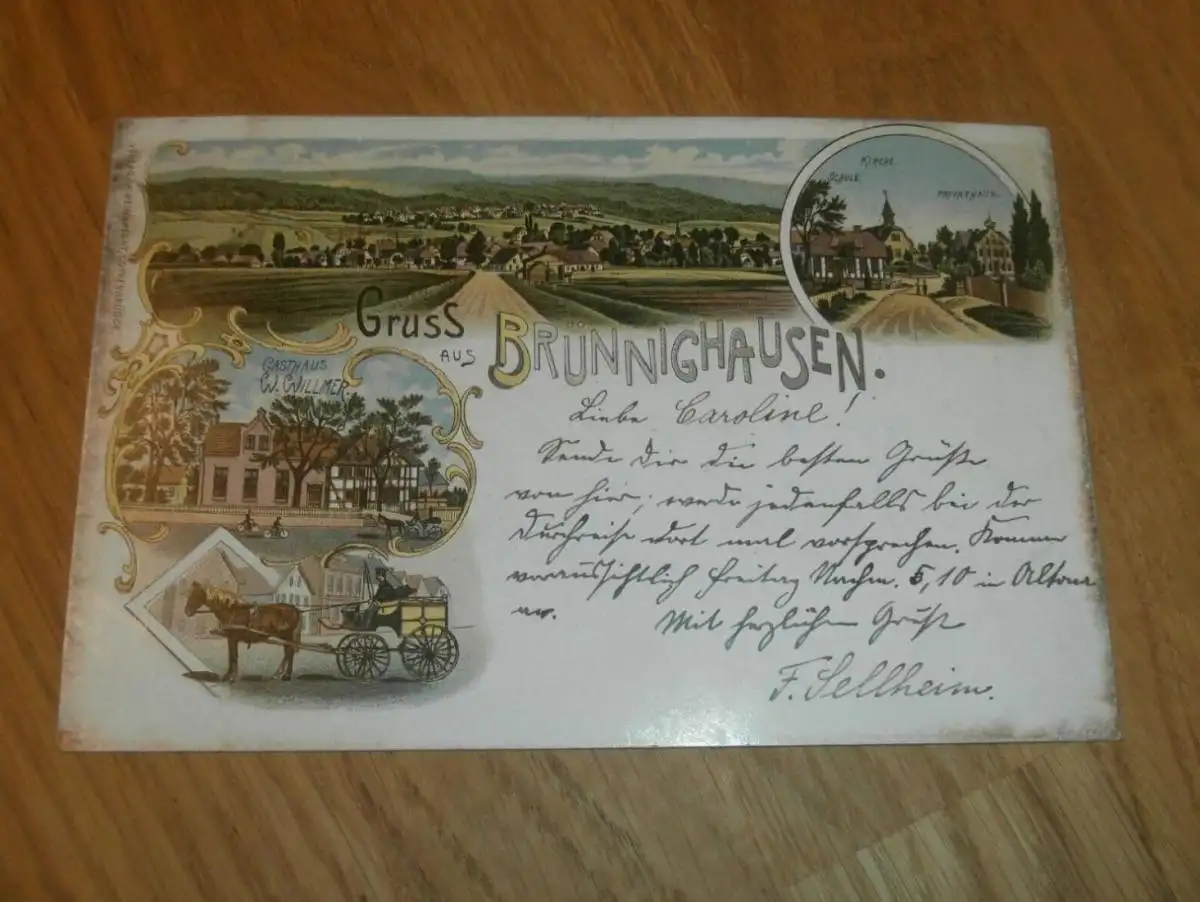 Kirche.
Schule.
Privathaus.
Gruss
aus
Brünnighausen.
Gasthaus
W. Willmer.
Liebe Caroline!
Sende dir die besten Grüße
von hier; werde jedenfalls bei der
Durchreise dort mal vorsprechen. Komme
voraussichtlich Freitag Nachm. 5,10 in Altona
an.
Mit herzlichem Gruß
F. Sellheim.